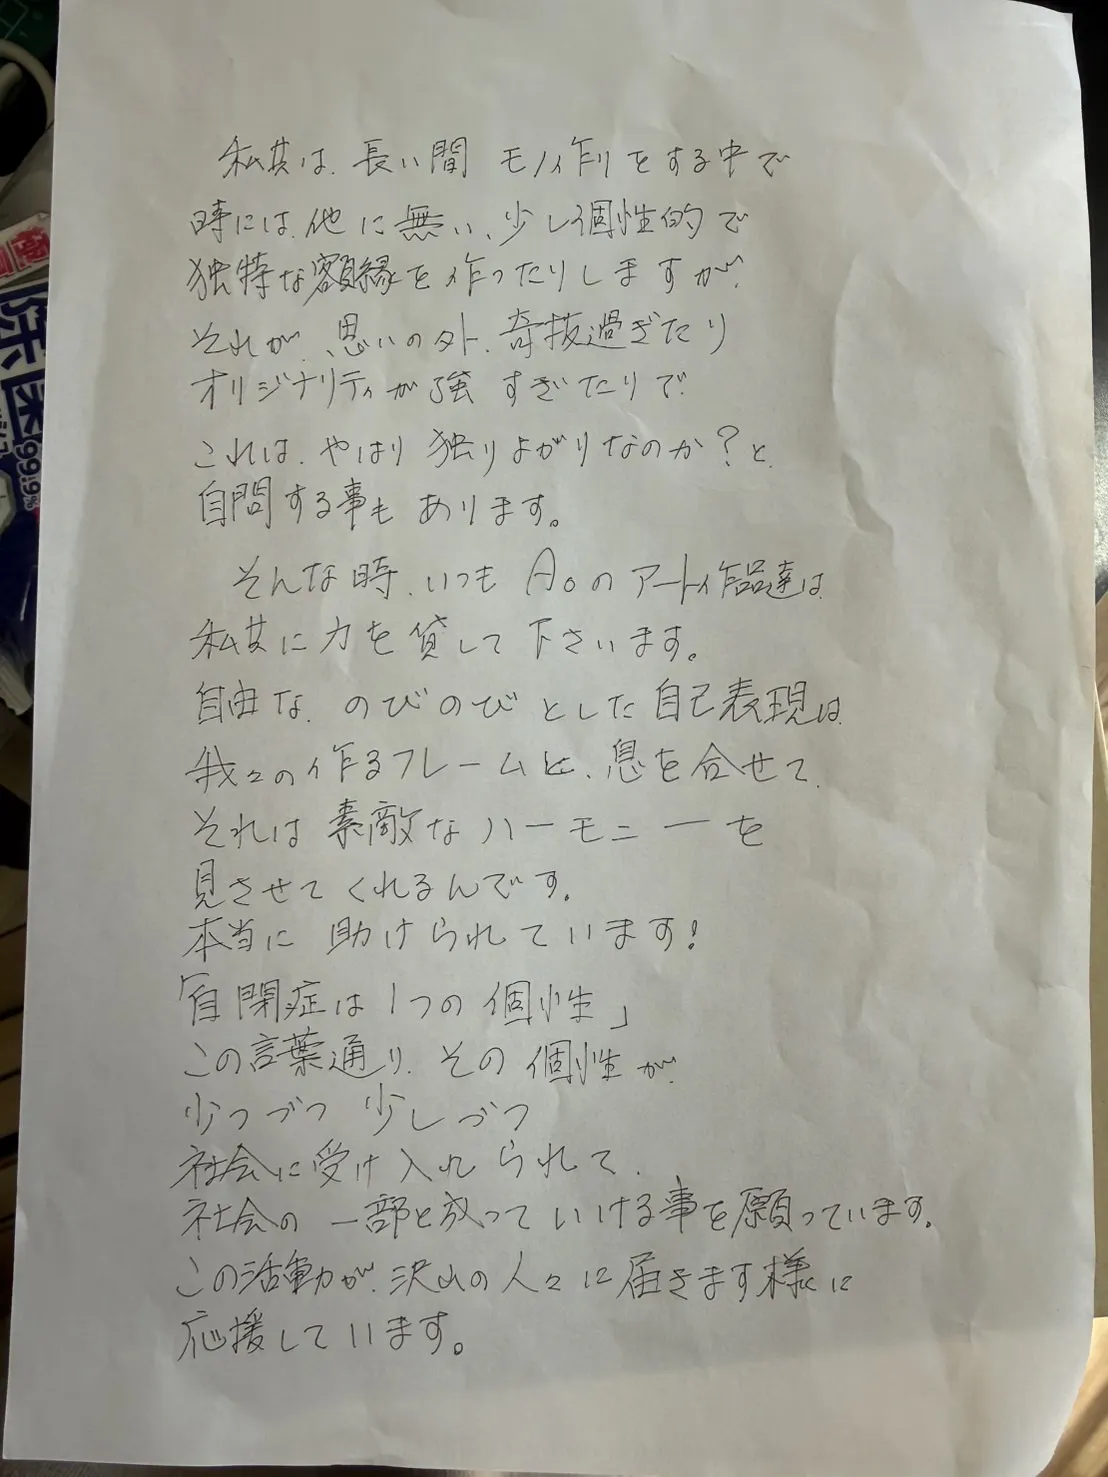 私共は、長い間 モノ作りをする中で
時には、他に無い、少し個性的で
独特な額縁を作ったりしますが、
それが、思いの外、奇抜過ぎたり
オリジナリティが強すぎたりで
これは、やはり独りよがりなのか？と、
自問する事もあります。
そんな時、いつも Aoのアート作品達は、
私共に力を貸して下さいます。
自由な、のびのびとした自己表現は、
我々の作るフレームと、息を合せて、
それは素敵なハーモニーを
見させてくれるんです。
本当に助けられています！
「自閉症は1つの個性」
この言葉通り、その個性が、
少つづつ 少しづつ
社会に受け入れられて、
社会の一部と成っていける事を願っています。
この活動が、沢山の人々に届きます様に
応援しています。
除菌
99.9%